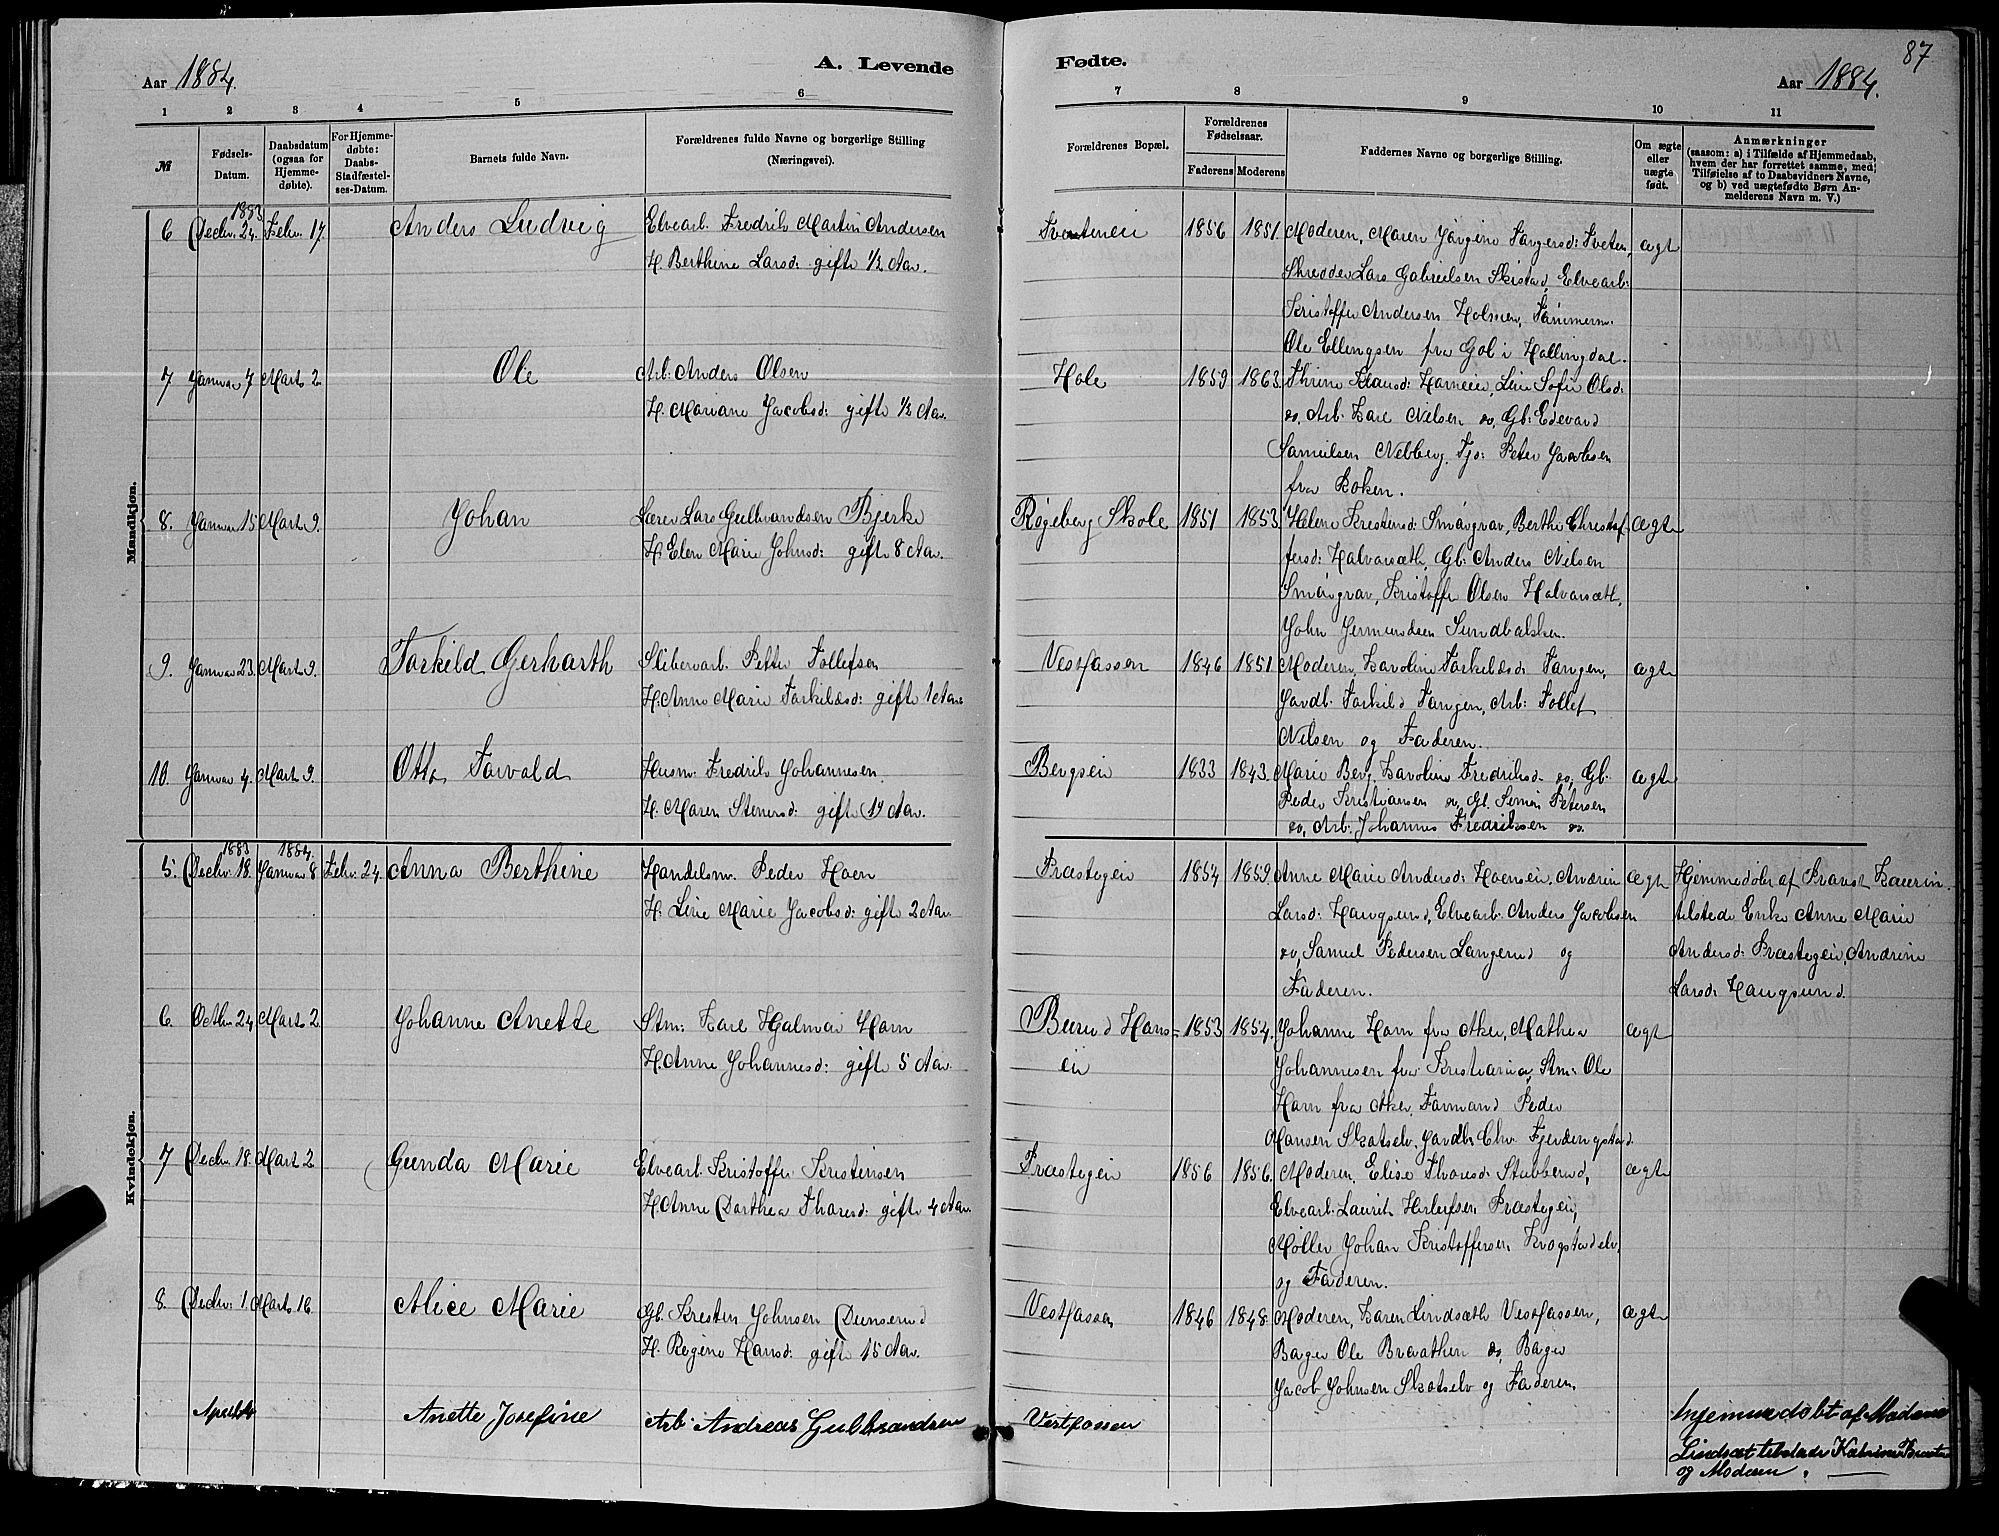 87
Aar 1884.
A. Levende
Fødte.
Aar 1884.
1 2 3 4 5 6 7 8 9 10 11
№
Fødsels-
Datum.
Daabsdatum
(ogsaa for
Hjemme-
døbte).
For Hjemme-
døbte:
Daabs-
Stadfæstel-
ses-Datum.
Barnets fulde Navn.
Forældrenes fulde Navne og borgerlige Stilling
(Næringsvei).
Forældrenes Bopæl.
Forældrenes
Fødselsaar.
Faderens Moderens
Faddernes Navne og borgerlige Stilling.
Om ægte
eller
uægte
født.
Anmærkninger
(saasom: a) i Tilfælde af Hjemmedaab,
hvem der har forrettet samme, med
Tilføielse af to Daabsvidners Navne,
og b) ved uægtefødte Børn An-
melderens Navn m. V.)
Mandkjøn.
1883
6 Decbr. 24. Febr. 17. Anders Ludvig Elvearb. Fredrik Martin Andersen 1856 1851 Moderen, Maren Jørgine ægt
H. Berthine Larsd: gift 1/2 Aar. Skrædder Lars Gabrielsen Skistad, Elvearb:
Kristoffer Andersen
Ole Ellingsen fra Gol i Hallingdal.
7 Januar 7 Marts 2. Ole Arb: Anders Olsen Hole 1859 1863 Line Sofie Olsd:
H. Mariane Jacobsd: gift 1/2 Aar. do, Arb: Karl Nielsen do, Gb: Edevard
Samuelsen Nebberg, Peter Jacobsen
fra
8. Januar 15 Marts 9. Johan Lærer Lars Gulbrandsen Bjerke Røgeberg Skole 1851 1853 Helene Smørgrav, Berthe Christof- ægte
H. Elen Marie Johnsd: gift 8 Aar. fersd: Halvorsæth, Gb: Anders Nilsen
Smørgrav, Kristoffer Olsen Halvorsæth,
John
9. Januar 23. Marts 9. Tarkild Gerharth Sliberarb. Petter Tollefsen Vestfossen 1846 1851 Moderen, Karoline Tarkildsd: Tangen, ægt
H. Anne Marie Tarkildsd: gift 1 Aar. Gaardb. Tarkild Tangen, Arb: Tollef
Nilsen og Faderen.
10. Januar 4. Marts 9. Otto Torvald Husm. Fredrik Johannesen. Bergseie 1833 1843. Marie Berg, Karoline Fredriksd do, Gb. ægte
H. Maren Stenersd: gift 19 Aar. Peder Kristiansen do, Gb. Simen Petersen
do, Arb: Johannes Fredriksen do.
Kvindekjøn.
1883 1884.
5. Decbr. 18. Januar 8 Febr. 24. Anna Berthine Handelsm. Peder Hoen Præstegeie 1854 1859. Anne Marie Andersd: Hoenseie, Andrine ægt Hjemmedøbt af Provst Laurin.
H. Line Marie Jacobsd: gift 2 Aar Larsd: Haugsund, Elvearb. Anders Jacobsen tilstede Enke Anne Marie
do, Samuel Pedersen Langerud og Andersd: Præstegeie, Andrine
Faderen. Larsd: Haugsund.
6. Octbr. 24 Marts 2 Johanne Anette Stm: Karl Hjalmar Horn 1853 1854. Johanne Horn fra Aker, Mathea ægt
H. Anne Johannesd: gift 5 Aar. eie Johannesen fra Kristiania, Stm: Ole
Horn fra Aker, Formand Peder
Hansen Skotselv, Gaardb. Chr. Fjerdingstad.
7 Decbr. 18. Marts 2 Gunda Marie Elvearb Kristoffer Kristensen Præstegeie 1856 1856. Moderen, Elise Thoresd: Stubberud, ægte
H. Anne Dorthea Thoresd: gift 4 Aar. Elvearb. Laurits Herlufsen Præstegeie,
Møller Johan Kristoffersen Krogstadelv.
og Faderen.
8. Decbr: 1. Marts 16. Alice Marie Gb. Kresten Johnsen Dunserud Vestfossen 1846 1848. Moderen, Karen Lindsæth Vestfossen, ægte
H. Regine Hansd: gift 15 Aar. Bager Ole Braathen do, Bager
Jacob Johnsen Skotselv og Faderen.
Anette Josefine Arb. Andreas Gulbrandsen Vestfossen Hjemmedøbt af Madame
Lindsæt tilstede Katrine
og Moderen.